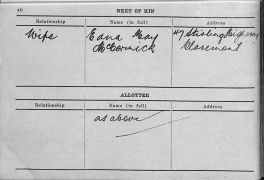 40
NEXT OF KIN
Relationship Name (in full) Address
Wife Edna May 47 Stirling Highway
McCormick Claremont
ALLOTTEE
Relationship Name (in full) Address
as above